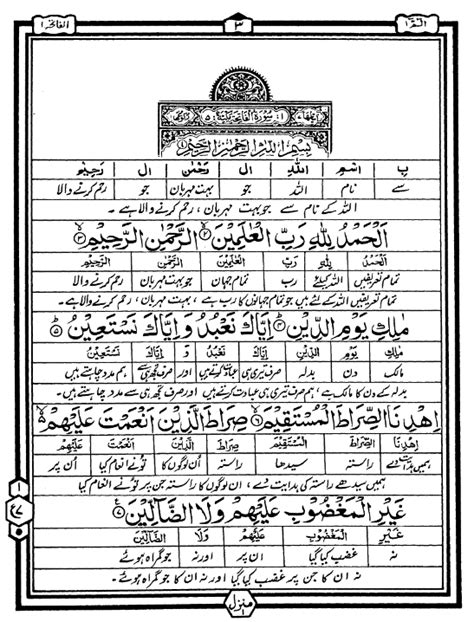 الٓمّٓ ١
٣
الفاتحة ١
١- سُوْرَةُ الْفَاتِحَةِ مَكِّيَّةٌ ٥
بِسْمِ اللّٰهِ الرَّحْمٰنِ الرَّحِيْمِ ۝١
بِ اسْمِ اللّٰهِ ال رَحْمٰن ال رَحِيْمِ
سے نام اللہ جو بہت مہربان جو رحم کرنے والا
اللہ کے نام سے جو بہت مہربان، رحم کرنے والا ہے۔
اَلْحَمْدُ لِلّٰهِ رَبِّ الْعٰلَمِيْنَ ۝٢ الرَّحْمٰنِ الرَّحِيْمِ ۝٣
اَلْحَمْدُ لِلّٰهِ رَبِّ الْعٰلَمِيْنَ الرَّحْمٰنِ الرَّحِيْمِ
تمام تعریفیں اللہ کیلئے رب تمام جہان جو بہت مہربان رحم کرنے والا
تمام تعریفیں اللہ کے لئے ہیں جو تمام جہانوں کا رب ہے، بہت مہربان، رحم کرنے والا ہے۔
مٰلِكِ يَوْمِ الدِّيْنِ ۝٤ اِيَّاكَ نَعْبُدُ وَ اِيَّاكَ نَسْتَعِيْنُ ۝٥
مٰلِكِ يَوْمِ الدِّيْنِ اِيَّاكَ نَعْبُدُ وَ اِيَّاكَ نَسْتَعِيْنُ
مالک دن بدلہ صرف تیری ہی عبادت کرتے ہیں اور صرف تجھ ہی سے ہم مدد چاہتے ہیں
بدلہ کے دن کا مالک ہے، ہم صرف تیری ہی عبادت کرتے ہیں اور صرف تجھ ہی سے مدد چاہتے ہیں۔
اِهْدِنَا الصِّرَاطَ الْمُسْتَقِيْمَ ۝٦ صِرَاطَ الَّذِيْنَ اَنْعَمْتَ عَلَيْهِمْ
اِهْدِنَا الصِّرَاطَ الْمُسْتَقِيْمَ صِرَاطَ الَّذِيْنَ اَنْعَمْتَ عَلَيْهِمْ
ہمیں ہدایت دے راستہ سیدھا راستہ اُن لوگوں کا تُونے انعام کیا اُن پر
ہمیں سیدھے راستہ کی ہدایت دے، ان لوگوں کا راستہ جن پر تُونے انعام کیا
غَيْرِ الْمَغْضُوْبِ عَلَيْهِمْ وَلَا الضَّآلِّيْنَ ۝٧
غَيْرِ الْمَغْضُوْبِ عَلَيْهِمْ وَلَا الضَّآلِّيْنَ
نہ غضب کیا گیا ان پر اور نہ جو گمراہ ہوئے
نہ ان کا جن پر غضب کیا گیا اور نہ ان کا جو گمراہ ہوئے۔
منزل ١